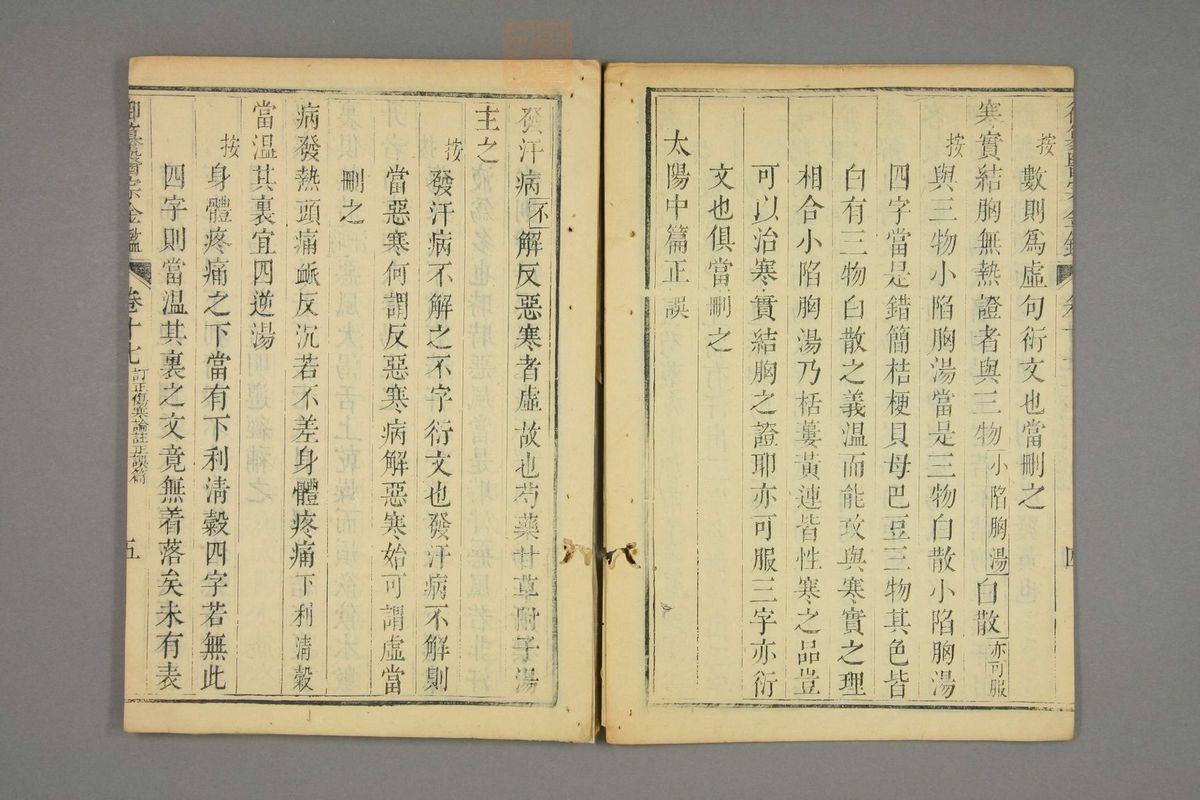 按
數則爲虛句衍文也當刪之
寒實結胸無熱證者與三物小陷胸湯白散亦可服
按
與三物小陷胸湯當是三物白散小陷胸湯
四字當是錯簡桔梗貝母巴豆三物其色皆
白有三物白散之義溫而能攻與寒實之理
相合小陷胸湯乃栝蔞黃連皆性寒之品豈
可以治寒實結胸之證耶亦可服三字亦衍
文也俱當刪之
太陽中篇正誤
發汗病不解反惡寒者虛故也芍藥甘草附子湯
主之
按
發汗病不解之不字衍文也發汗病不解則
當惡寒何謂反惡寒病解惡寒始可謂虛當
刪之
病發熱頭痛脈反沉若不差身體疼痛下利淸穀
當溫其裏宜四逆湯
按
身體疼痛之下當有下利淸穀四字若無此
四字則當溫其裏之文竟無着落矣未有表
御纂醫宗金鑑 卷十七 訂正傷寒論註正誤篇 五